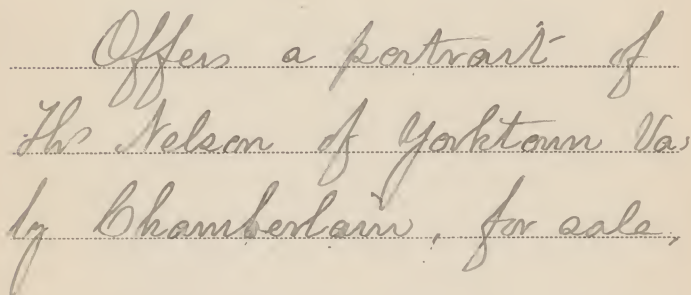 Offers a portrait of
Ths Nelson of Yorktown Va,
by Chamberlain, for sale,